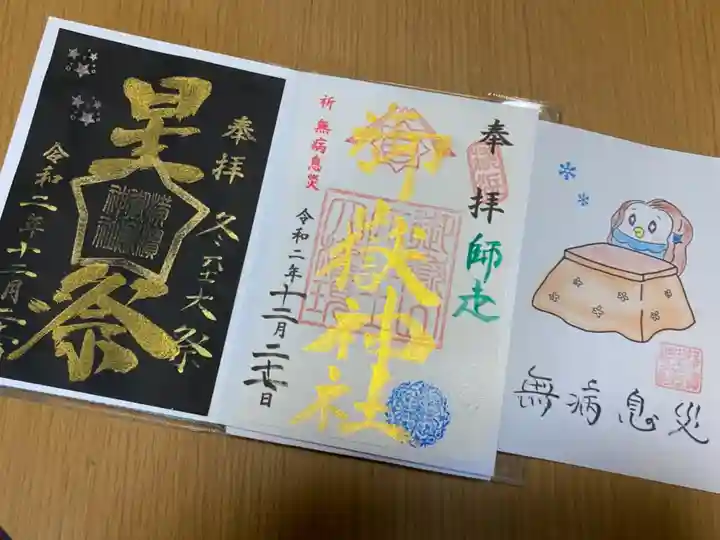 奉拝
冬至大祭
星祭
令和二年十二月二
奉拝
師走
御嶽神社
祈 無病息災
令和二年十二月二十七日
無病息災